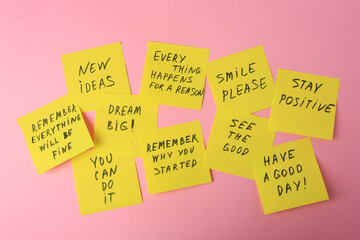 NEW
IDEAS
EVERY
THING
HAPPENS
FOR A REASON
SMILE
PLEASE
STAY
POSITIVE
REMEMBER
EVERYTHING
WILL BE
FINE
DREAM
BIG!
REMEMBER
WHY YOU
STARTED
SEE
THE
GOOD
YOU
CAN
DO
IT
HAVE
A GOOD
DAY!